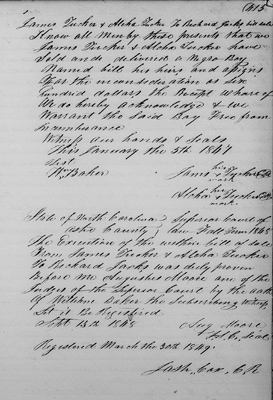 (415)
James Tucker & Aloha Tucker To Richard Jacks bill sale
Know all Men by these presents that we
James Tucker & Aloha Tucker have
Sold and delivered a Negro Boy
Named bill his heirs and assigns
For the consideration of six
hundrid dollars the Receipt whare of
We do hereby Acknowledge & we
Warrant the Said Boy Free from
Incumbrance
Witness our hands & Seals
This January the 5th 1847
Test
Wm Baker
his
James Tucker
mark
her
Aloha Tucker
mark
State of North Carolina Superior Court of
Ashe County Law Fall Term 1848
The Execution of the within bill of Sale
From James Tucker & Aloha Tucker
To Richard Jacks was duly proven
Before Me Augustus Moore one of the
Judges of the Superior Court by the oath
of William Baker the Subscribing Witness
Let it Be Registered
Sept 13th 1848
Aug Moore
Registered March the 30th 1849.
Cox, C.R.